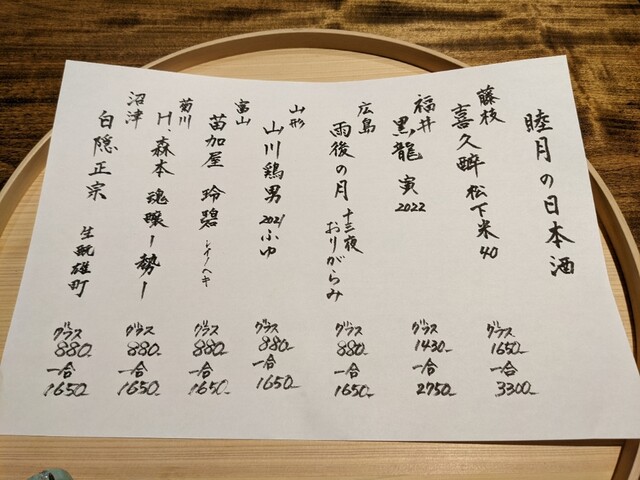 睦月の日本酒
藤枝
喜久酔 松下米40
グラス
1650-
一合
3300-
福井
黒龍 寅
2022
グラス
1430-
一合
2750-
広島
雨後の月 十三夜
おりがらみ
グラス
880-
一合
1650-
山形
山川鶏男 2021ふゆ
グラス
880-
一合
1650-
富山
苗加屋 玲碧 レイノヘキ
グラス
880-
一合
1650-
菊川
H・森本 魂醸ー勢ー
グラス
880-
一合
1650-
沼津
白隠正宗 生酛雄町
グラス
880-
一合
1650-